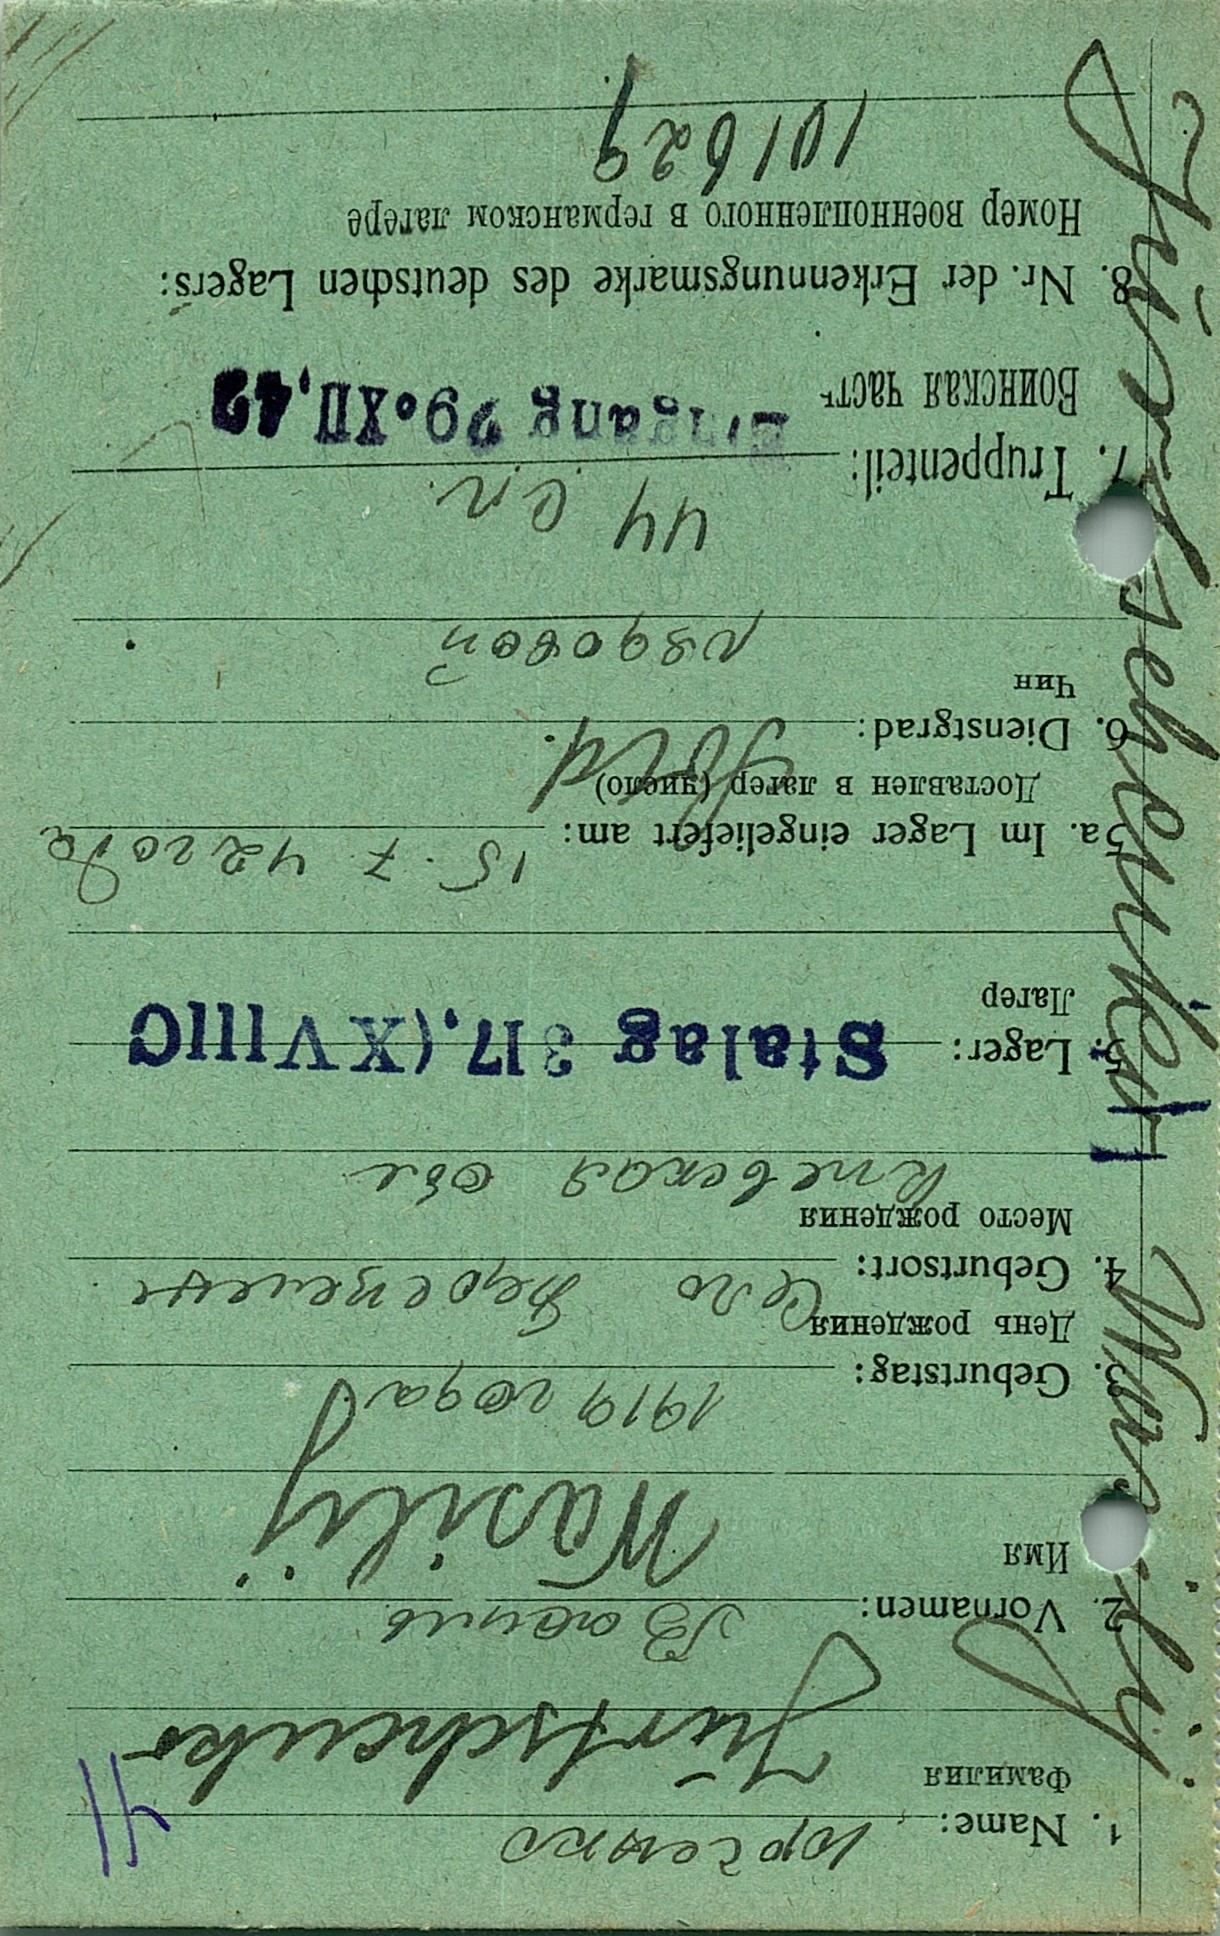 1. Name: Юрченко
Фамилия Jürtschenko
2. Vornamen: Василь
Имя Wasilij
3. Geburtstag: 1919 года
День рождения
4. Geburtsort: Село
Место рождения
Киевская обл
5. Lager: Stalag 317.(XVIIIC
Лагер
5a. Im Lager eingeliefert am: 15.7 42 года
Доставлен в лагер (число)
6. Dienstgrad: Sold.
Чин
рядовой
44 сп.
7. Truppenteil: Eingang 29.XII.42
Воинская часть
8. Nr. der Erkennungsmarke des deutschen Lagers:
Номер военнопленного в германском лагере
101629
Jürtschenko Wasilij